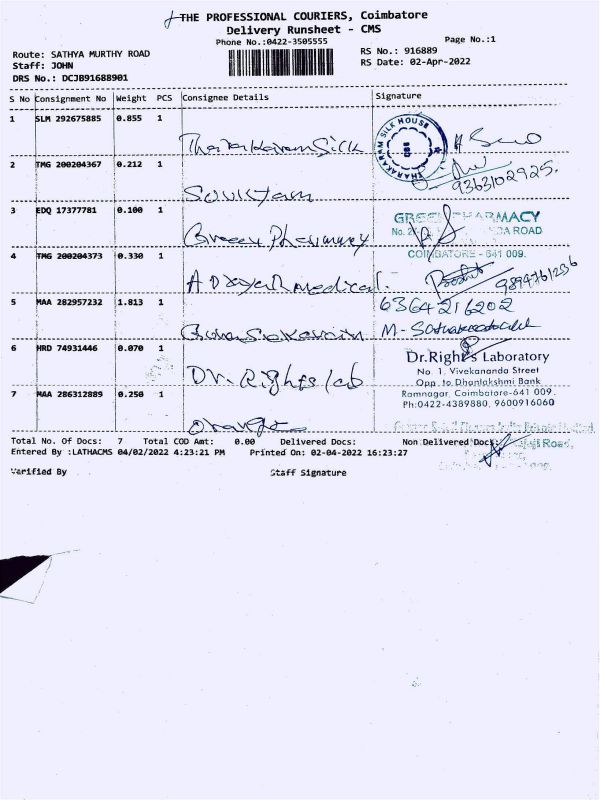 THE PROFESSIONAL COURIERS, Coimbatore
Delivery Runsheet - CMS
Phone No.:0422-3505555
Page No.:1
Route: SATHYA MURTHY ROAD
RS No.: 916889
Staff: JOHN
RS Date: 02-Apr-2022
DRS No.: DCJB91688901
S No Consignment No Weight PCS Consignee Details Signature
1 SLM 292675885 0.855 1
THARAKARAM SILK HOUSE
2 TMG 200204367 0.212 1
9363102925.
3 EDQ 17377781 0.100 1
GREEN PHARMACY
Green Pharmacy
ROAD
4 TMG 200204373 0.330 1
COIMBATORE - 641 009.
Adayar medical.
5 MAA 282957232 1.813 1
6364216202
6 HRD 74931446 0.070 1
Dr.Right's Laboratory
No. 1, Vivekananda Street
Dr. Rights lab
Opp. to Dhanlakshmi Bank
7 MAA 286312889 0.250 1
Ramnagar, Coimbatore-641 009.
Ph:0422-4389880, 9600916060
Orange
Total No. Of Docs: 7 Total COD Amt: 0.00 Delivered Docs: Non Delivered Docs:
Road,
Entered By :LATHACMS 04/02/2022 4:23:21 PM Printed On: 02-04-2022 16:23:27
Varified By Staff Signature